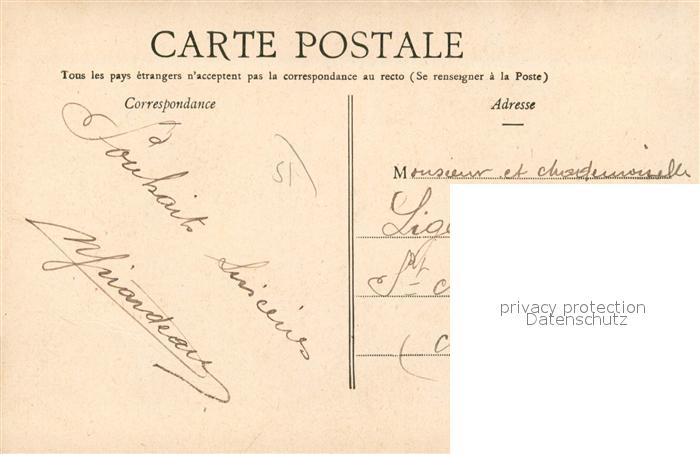 CARTE POSTALE
Tous les pays étrangers n'acceptent pas la correspondance au recto (Se renseigner à la Poste)
Correspondance
Adresse
Souhaits sincères
51
Monsieur et Mademoiselle
Lig
St
privacy protection
Datenschutz